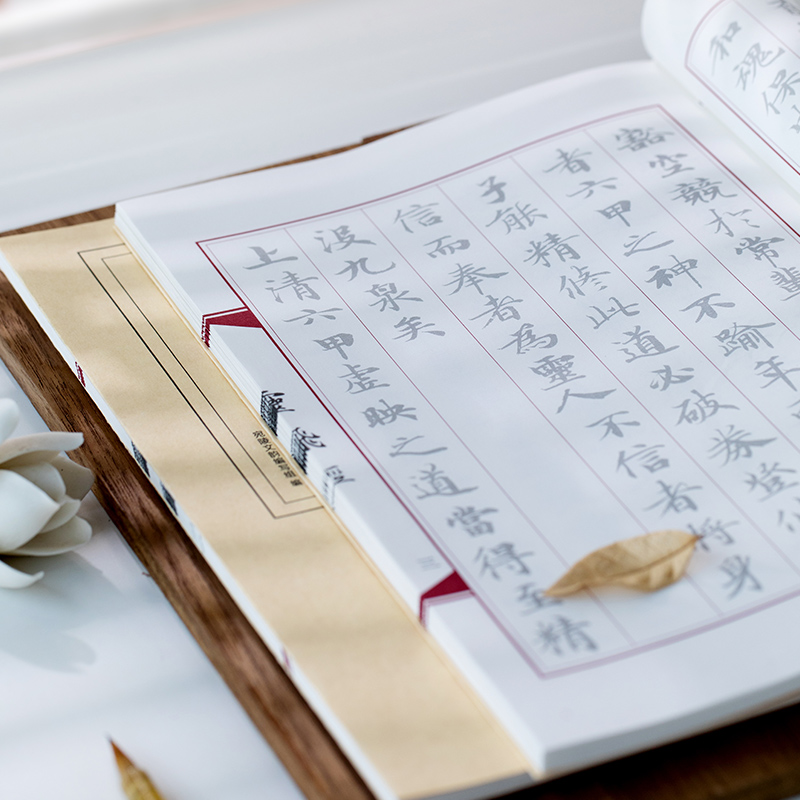 和魂保
豁空競於常輩
者六甲之神不踰年
子能精修此道必破券登仙
信而奉者為靈人不信者將身
沒九泉矣
上清六甲虛映之道當得至精
靈飛經
三